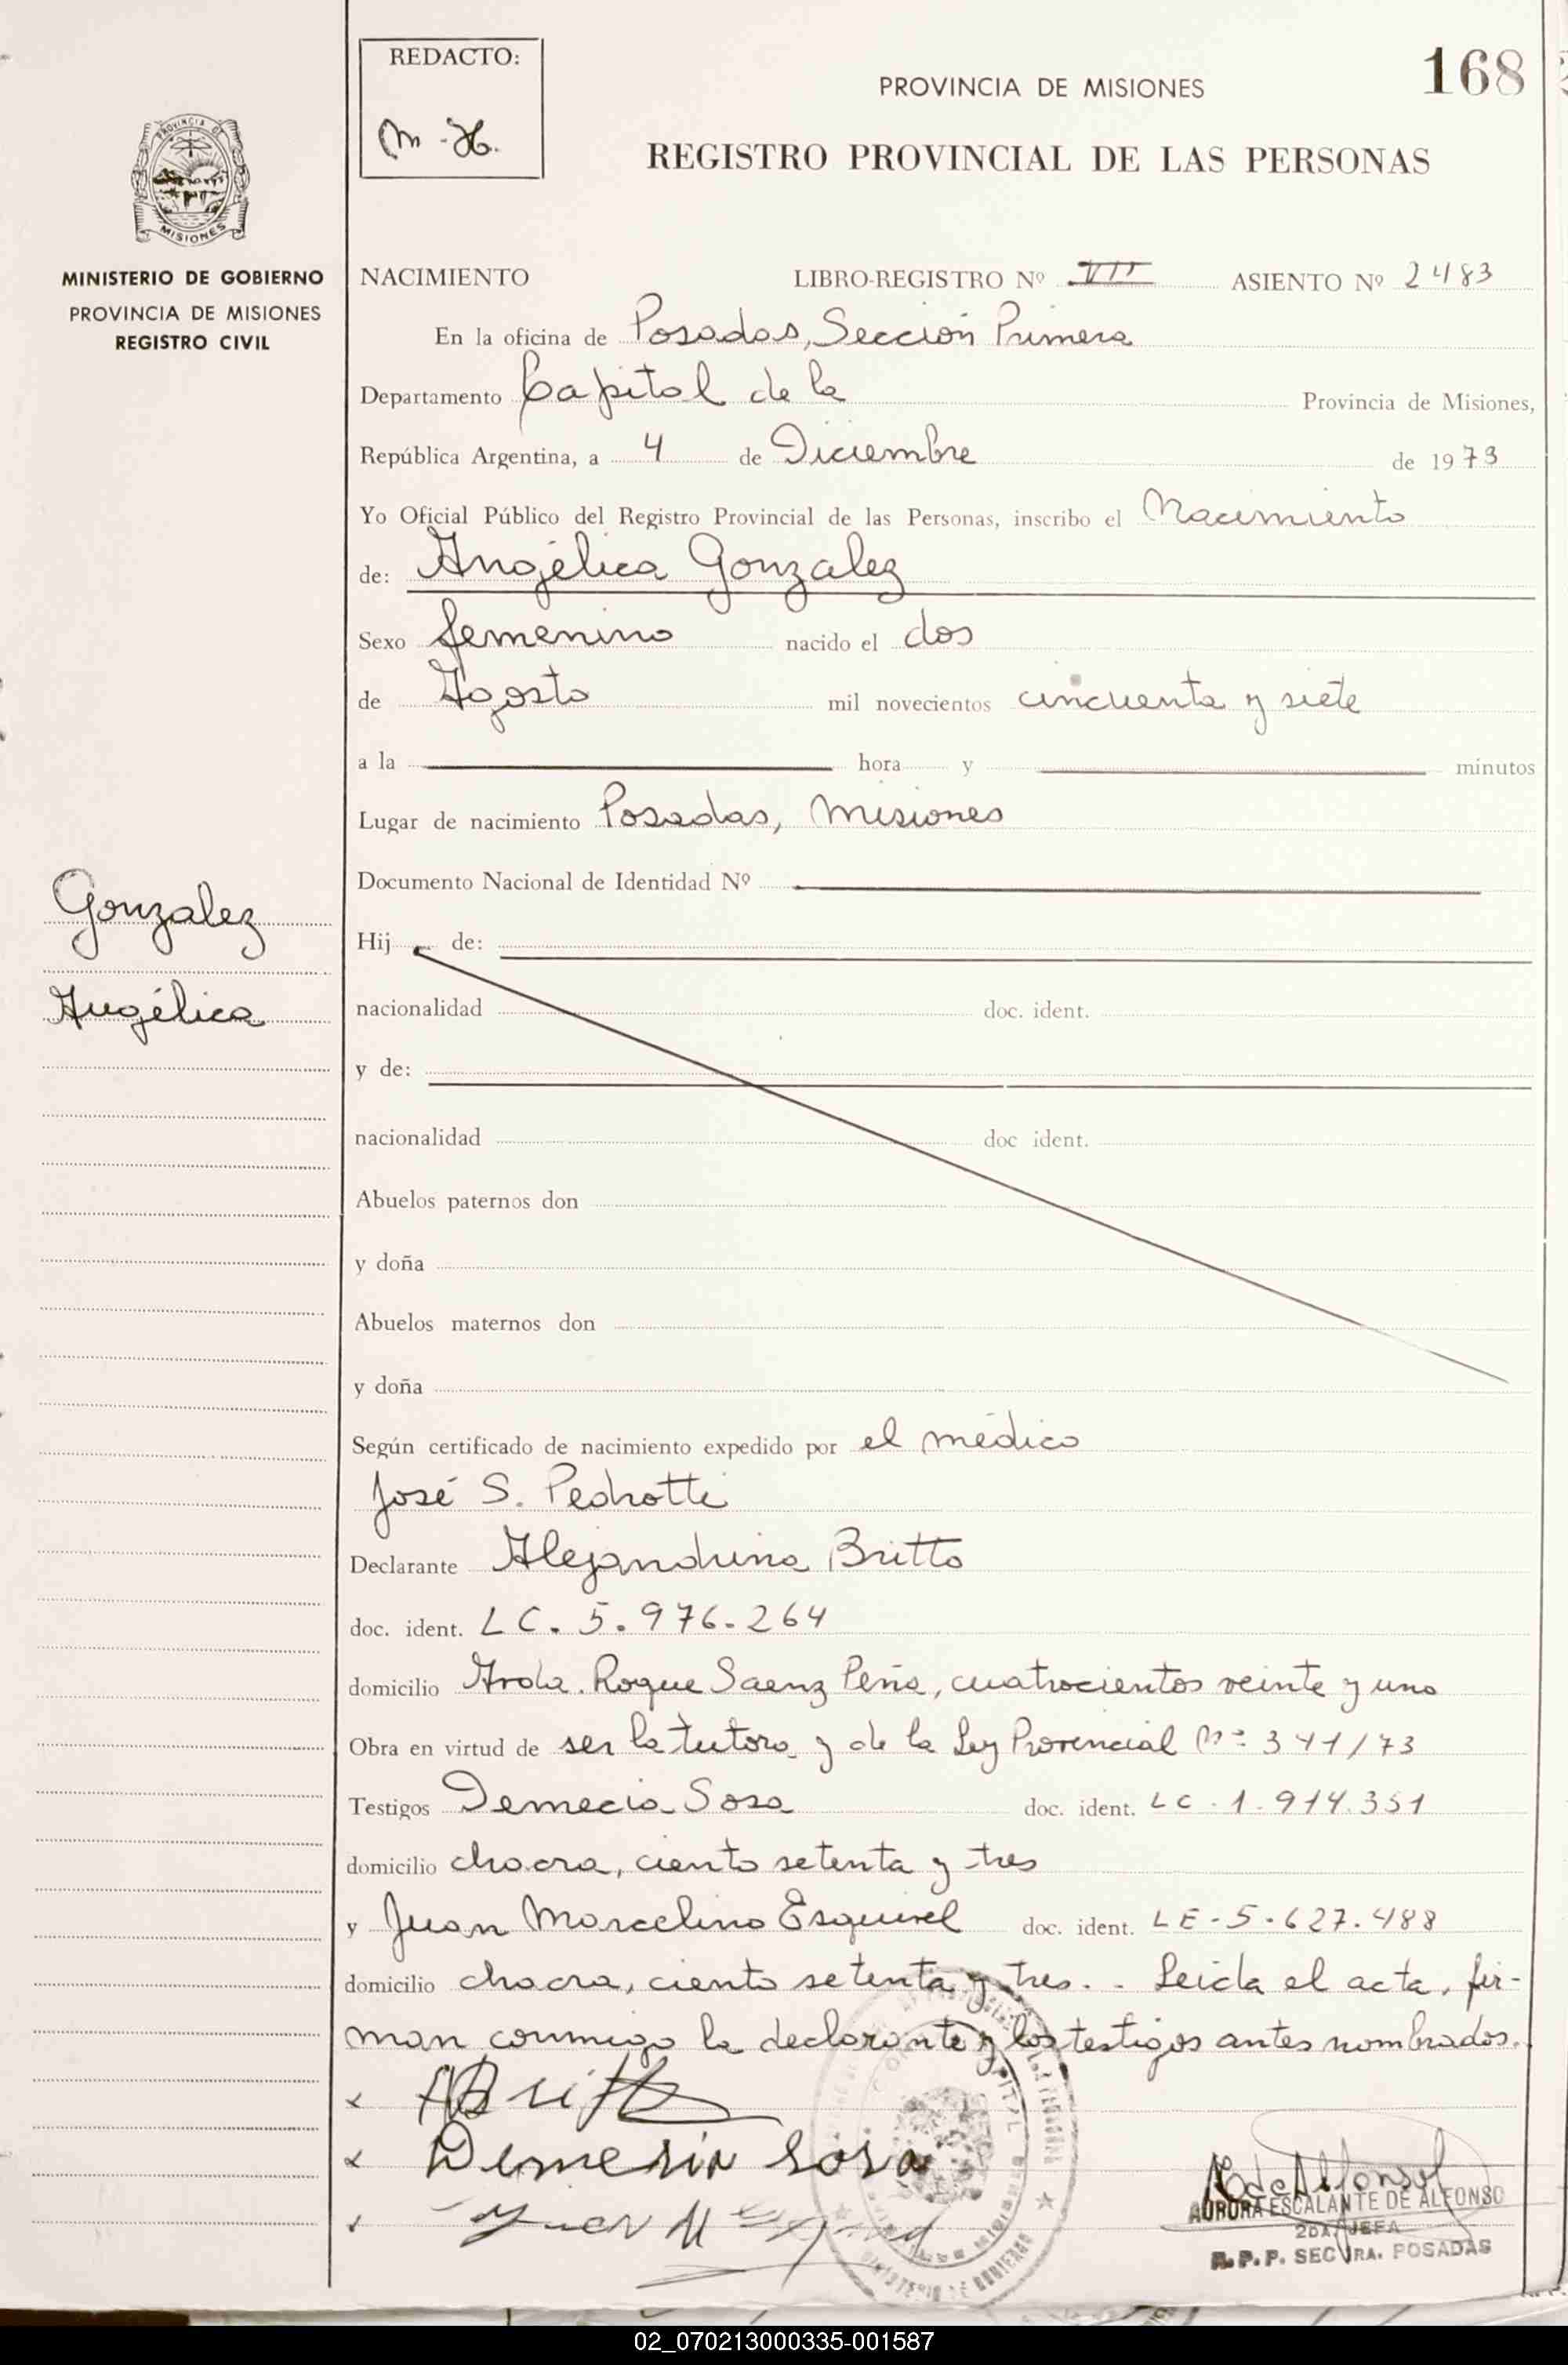 REDACTO:
M-H.
PROVINCIA DE MISIONES
168
REGISTRO PROVINCIAL DE LAS PERSONAS
PROVINCIA DE
MISIONES
MINISTERIO DE GOBIERNO
PROVINCIA DE MISIONES
REGISTRO CIVIL
NACIMIENTO LIBRO-REGISTRO Nº VII ASIENTO Nº 2483
En la oficina de Posadas, Sección Primera
Departamento Capital de la Provincia de Misiones,
República Argentina, a 4 de Diciembre de 1973
Yo Oficial Público del Registro Provincial de las Personas, inscribo el Nacimiento
de: Angélica Gonzalez
Sexo femenino nacido el dos
de Agosto mil novecientos cincuenta y siete
a la hora y minutos
Lugar de nacimiento Posadas, Misiones
Documento Nacional de Identidad Nº
Gonzalez
Angélica
Hij de:
nacionalidad doc. ident.
y de:
nacionalidad doc ident.
Abuelos paternos don
y doña
Abuelos maternos don
y doña
Según certificado de nacimiento expedido por el médico
José S. Pedrotti
Declarante Alejandrina Britto
doc. ident. LC. 5.976.264
domicilio Avda. Roque Saenz Peña, cuatrocientos veinte y uno
Obra en virtud de ser la tutora y de la Ley Provincial Nº 341/73
Testigos Demecia Sosa doc. ident. LC.1.914.351
domicilio chacra, ciento setenta y tres
y Juan Marcelino Esquivel doc. ident. LE-5.627.488
domicilio chacra, ciento setenta y tres. - Leída el acta, fir-
man conmigo la declarante y los testigos antes nombrados.
x ABritto
x Demesia Sosa
x Juan M Esquivel
AURORA ESCALANTE DE ALFONSO
2DA. JEFA
R.P.P. SEC 1RA. POSADAS
02_070213000335-001587